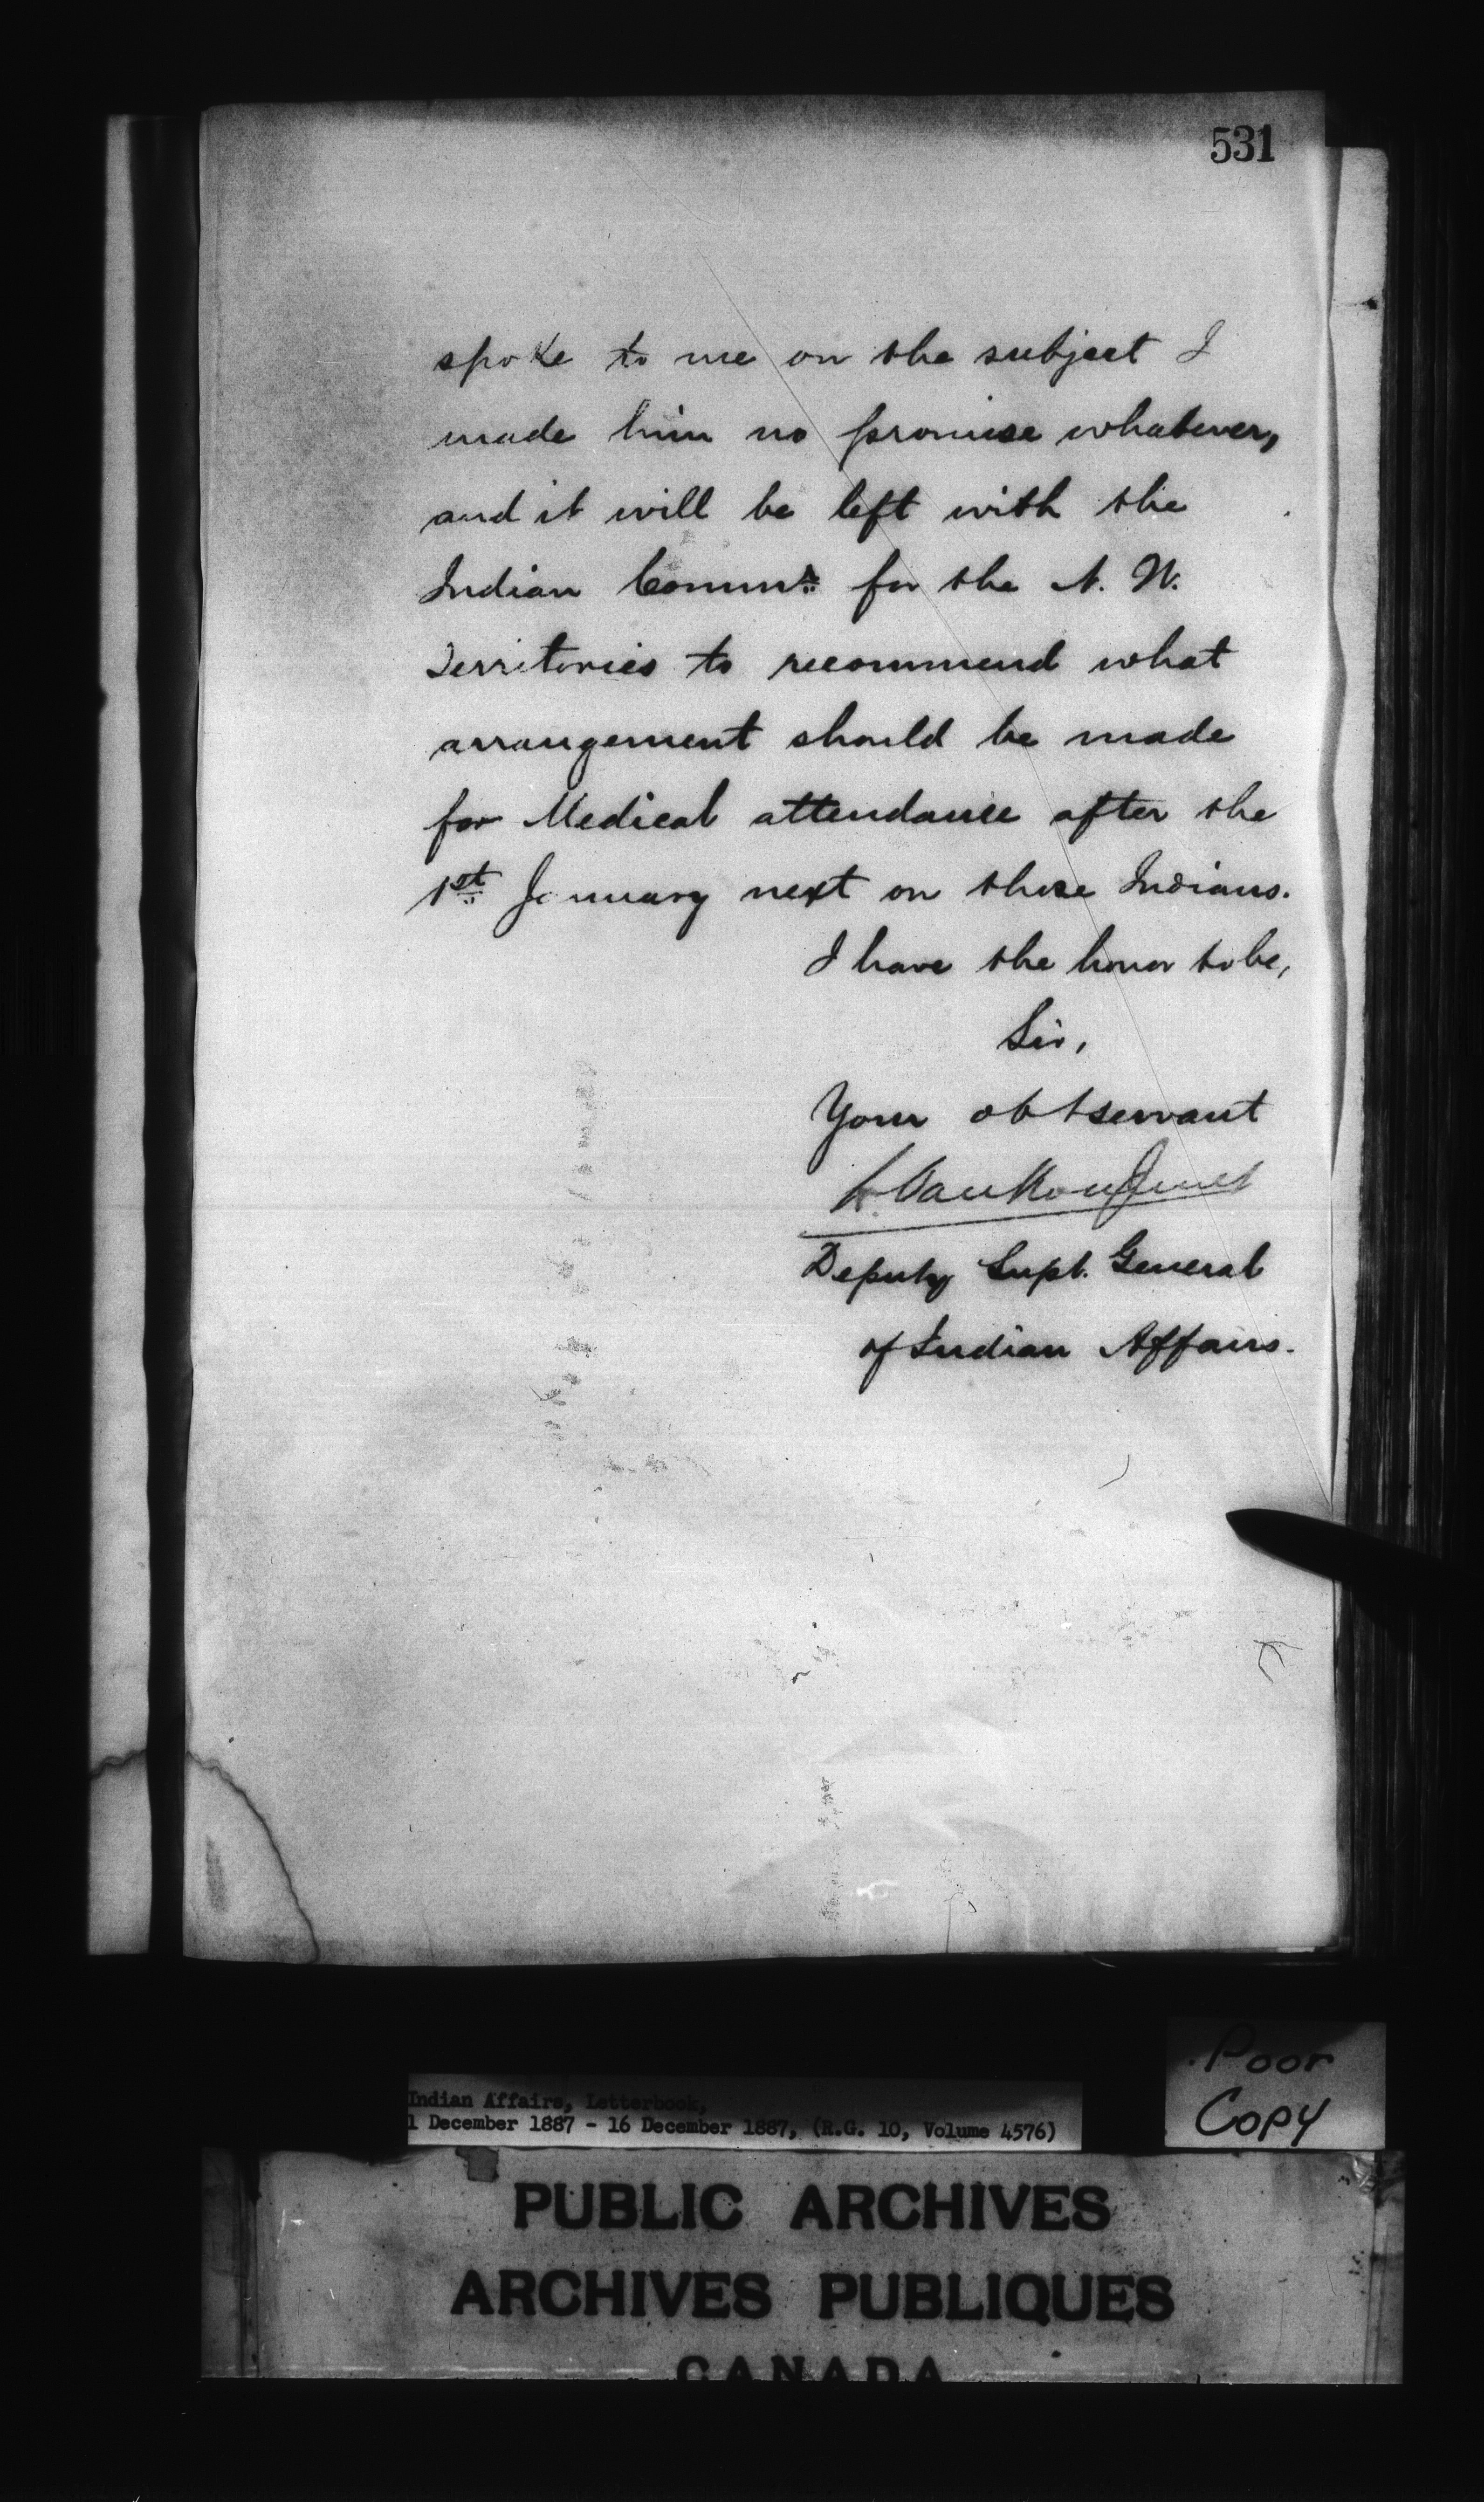 531
spoke to me on the subject I
made him no promise whatever,
and it will be left with the
Indian Commr. for the N. W.
Territories to recommend what
arrangement should be made
for Medical attendance after the
1st January next on those Indians.
I have the honor to be,
Sir,
Your obt servant
L. VanKoughnet
Deputy Supt. General
of Indian Affairs.
Poor
Copy
Indian Affairs, Letterbook,
1 December 1887 - 16 December 1887, (R.G. 10, Volume 4576)
PUBLIC ARCHIVES
ARCHIVES PUBLIQUES
CANADA